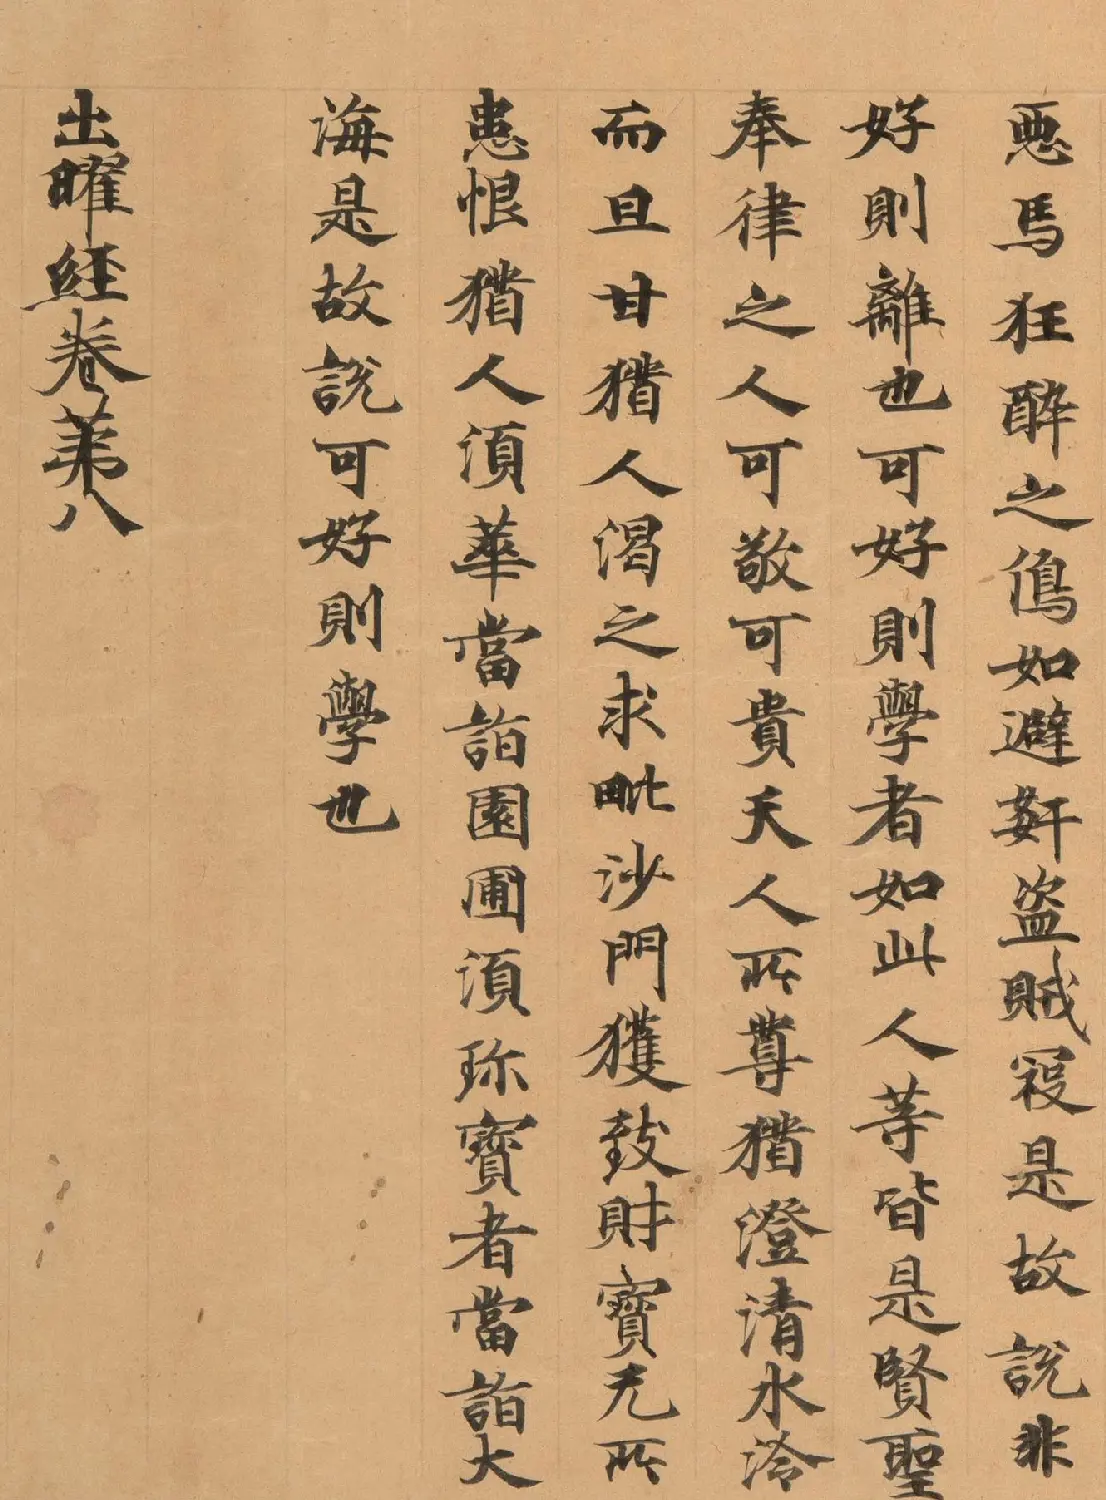 悪馬狂酔之傷如避姧盗賊役是故說非
好則離也可好則學者如此人等皆是賢聖
奉律之人可敬可貴天人所尊猶澄清水冷
而且甘猶人渴之求毗沙門獲致財寶无所
恚恨猶人須華當詣園圃須珎寶者當詣大
海是故說可好則學也
出曜經卷苐八